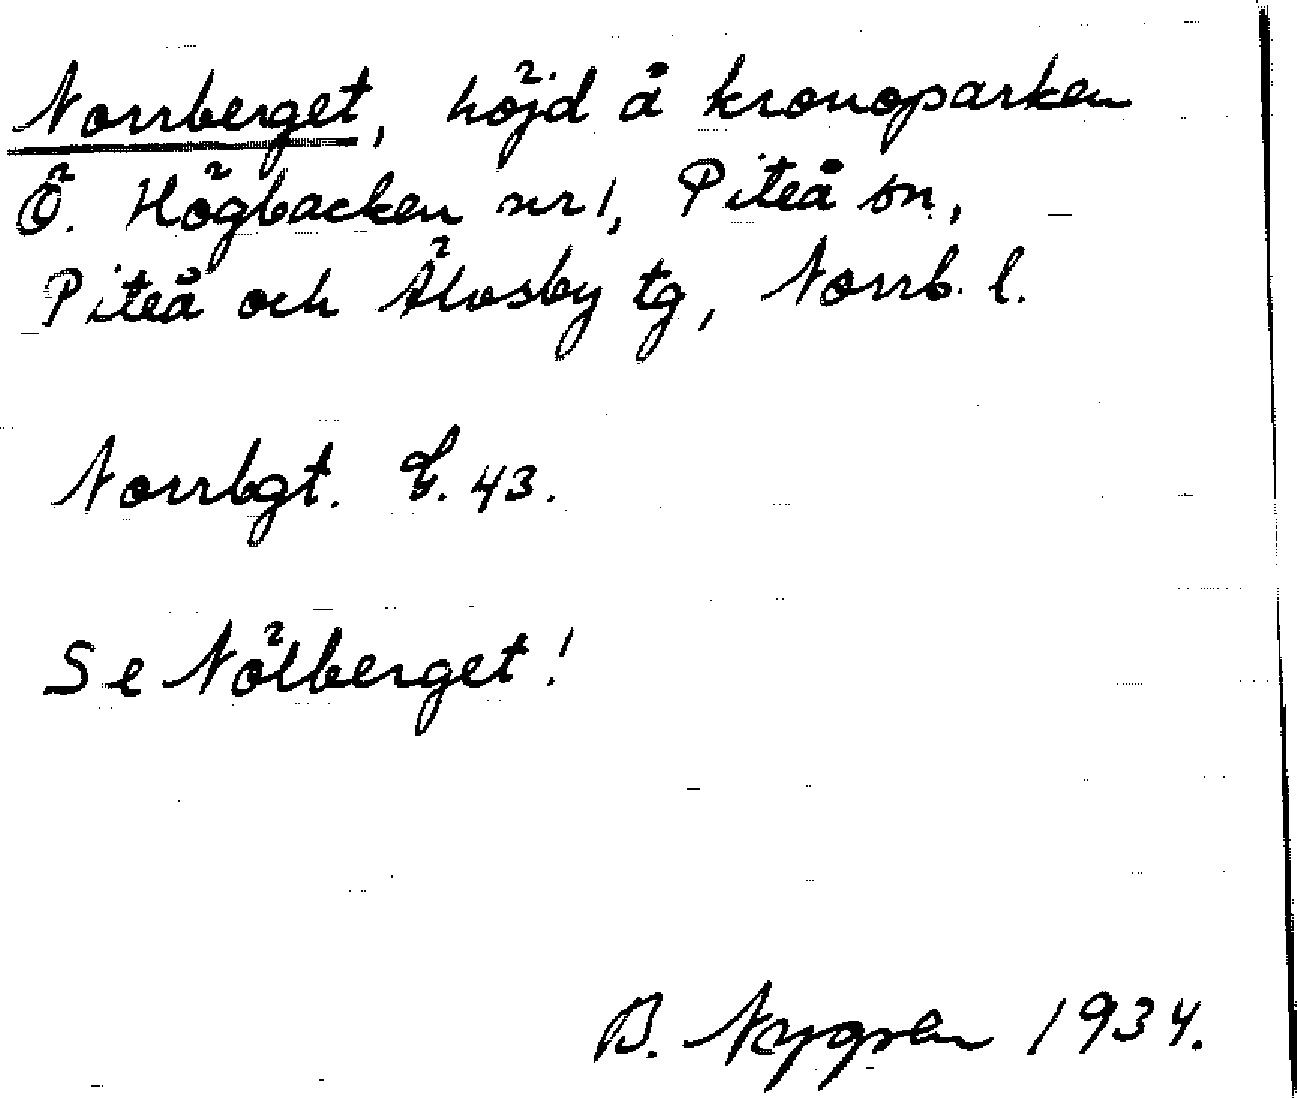 Norrberget, höjd å kronoparken
Ö. Högbacken nr 1, Piteå sn,
Piteå och Älvsby tg, Norrb. l.
Norrbgt. E. 43.
Se Nölberget!
B. Nygren 1934.